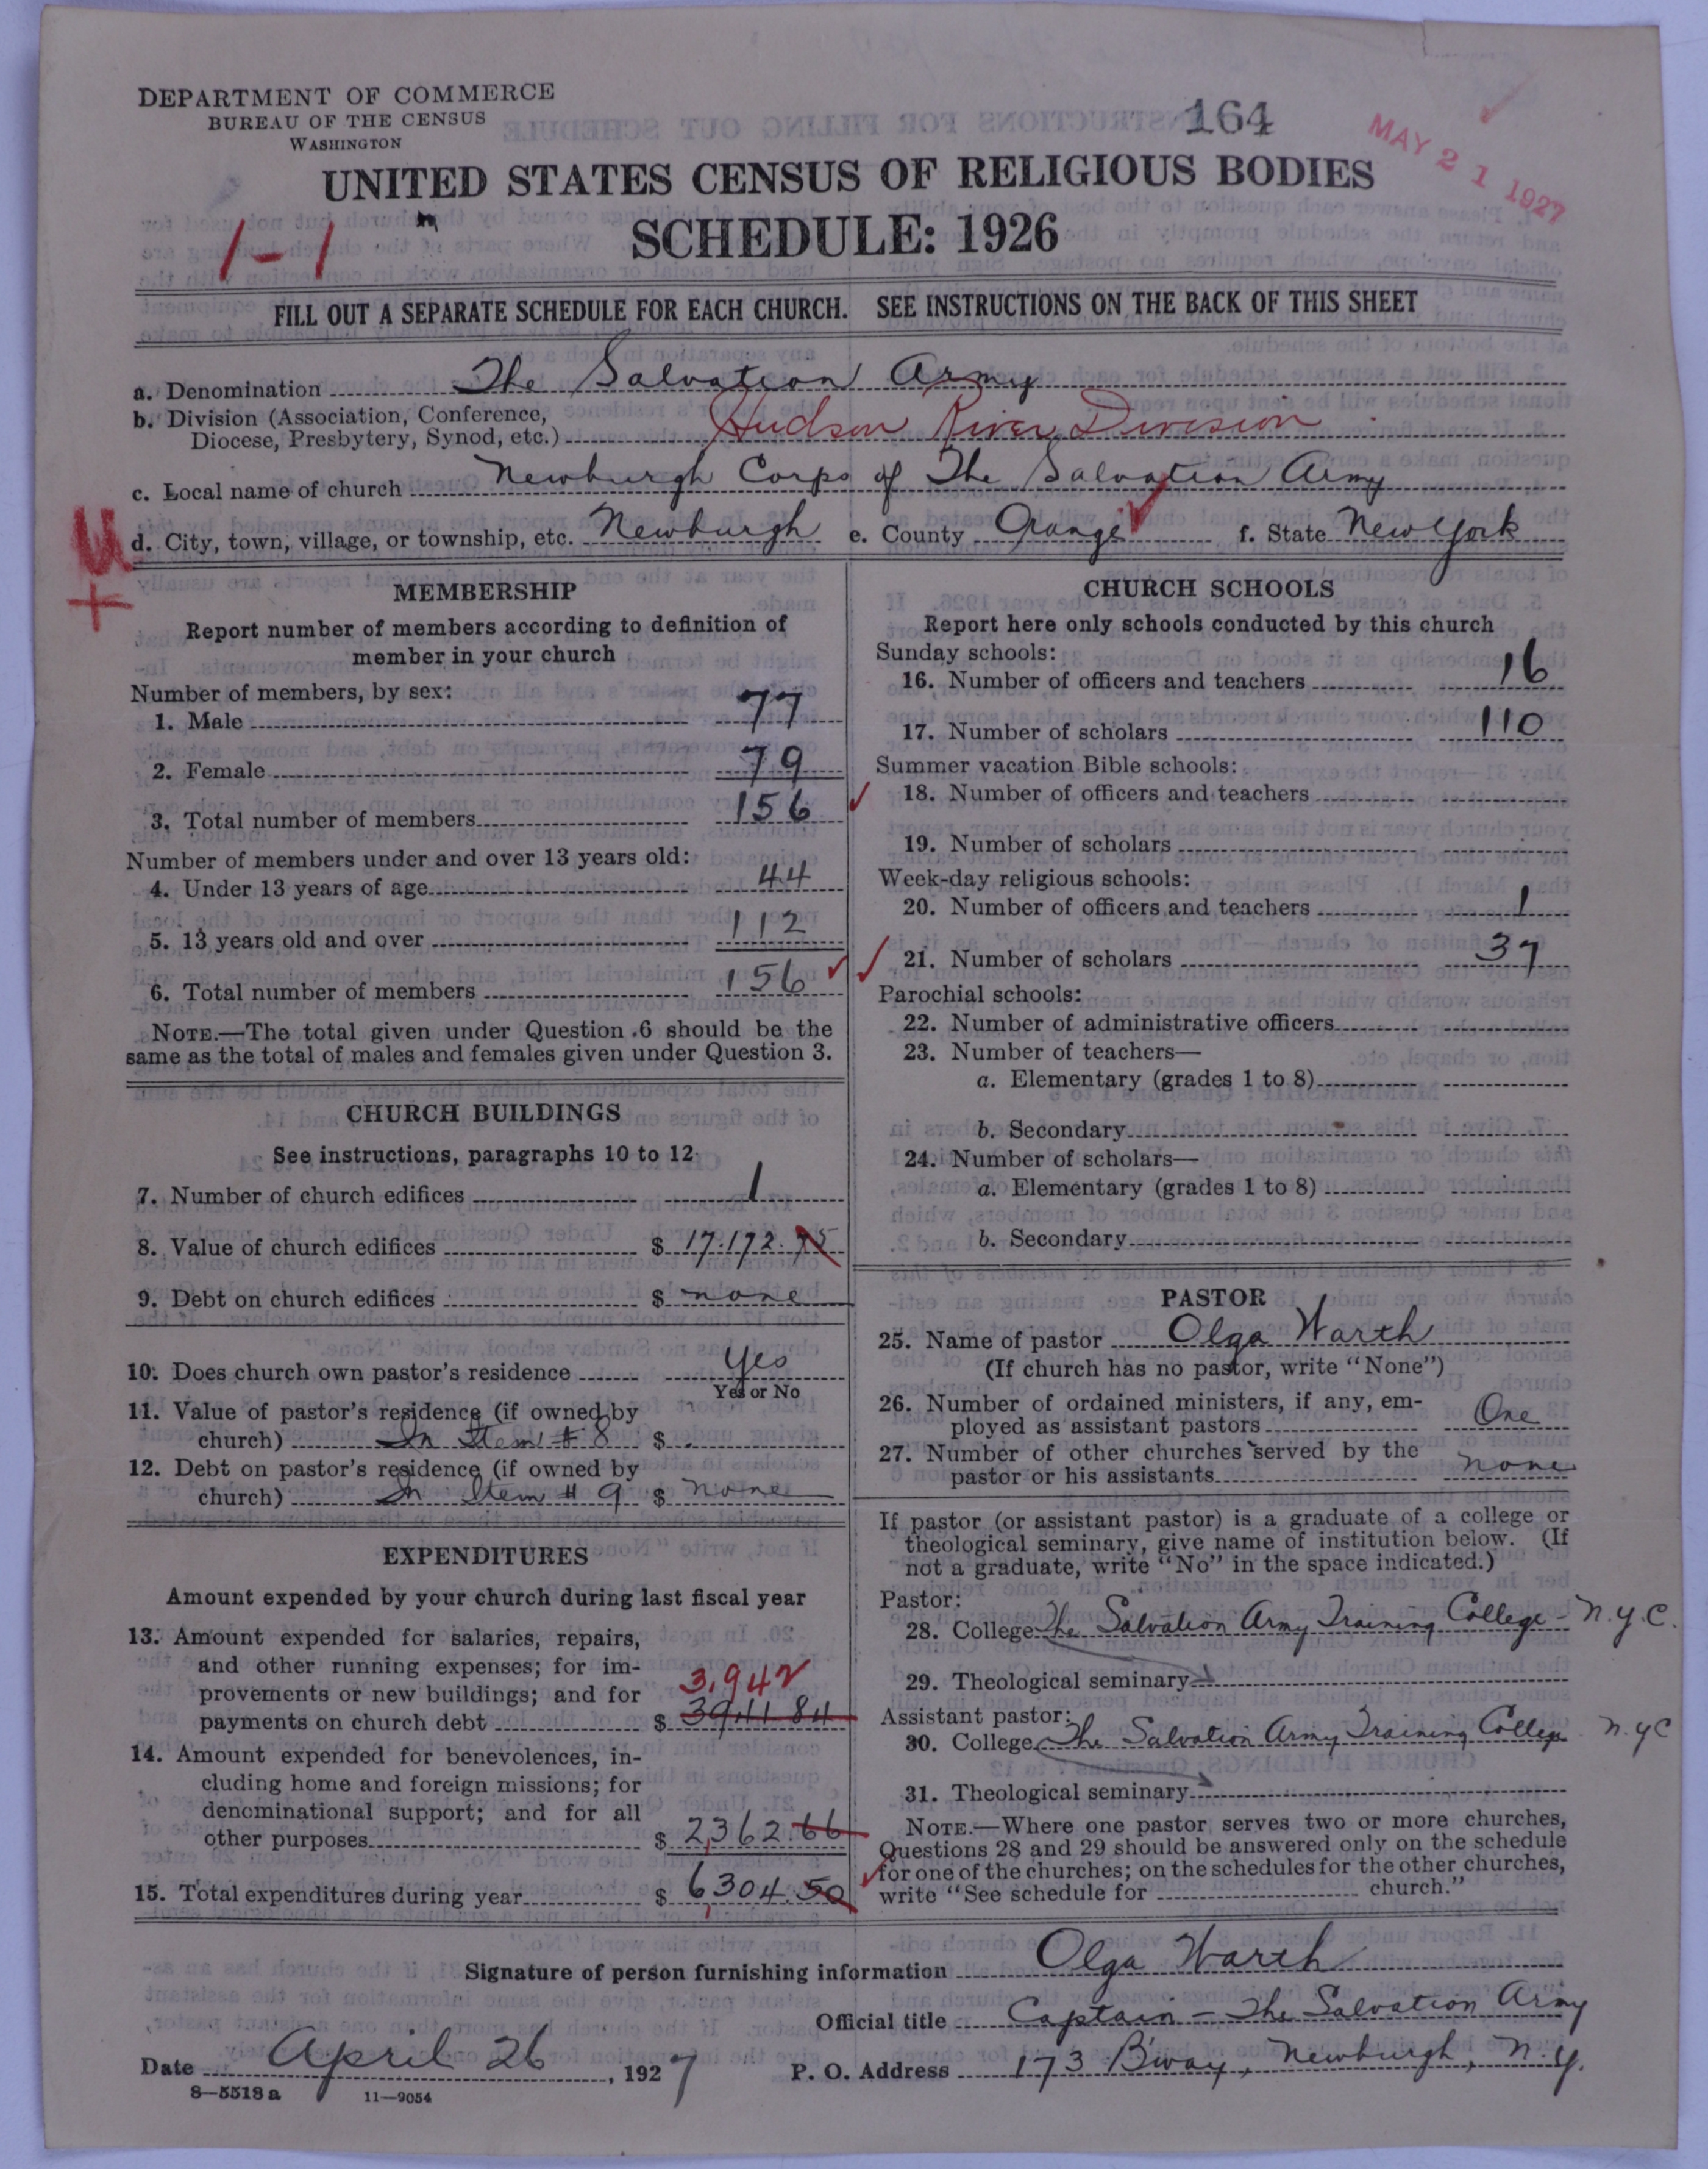 DEPARTMENT OF COMMERCE
BUREAU OF THE CENSUS
WASHINGTON
164
MAY 21 1927
UNITED STATES CENSUS OF RELIGIOUS BODIES
SCHEDULE: 1926
1-1
FILL OUT A SEPARATE SCHEDULE FOR EACH CHURCH. SEE INSTRUCTIONS ON THE BACK OF THIS SHEET
a. Denomination The Salvation Army
b. Division (Association, Conference,
Diocese, Presbytery, Synod, etc.) Hudson River Division
c. Local name of church Newburgh Corps of The Salvation Army
d. City, town, village, or township, etc. Newburgh e. County Orange f. State New York
U
+
MEMBERSHIP
Report number of members according to definition of
member in your church
Number of members, by sex:
1. Male 77
2. Female 79
3. Total number of members 156
Number of members under and over 13 years old:
4. Under 13 years of age 44
5. 13 years old and over 112
6. Total number of members 156
NOTE.—The total given under Question 6 should be the
same as the total of males and females given under Question 3.
CHURCH BUILDINGS
See instructions, paragraphs 10 to 12
7. Number of church edifices 1
8. Value of church edifices $ 17.172.75
9. Debt on church edifices $ none
10. Does church own pastor's residence Yes
Yes or No
11. Value of pastor's residence (if owned by
church) In Item # 8 $
12. Debt on pastor's residence (if owned by
church) In Item # 9 $ none
EXPENDITURES
Amount expended by your church during last fiscal year
13. Amount expended for salaries, repairs,
and other running expenses; for im-
provements or new buildings; and for 3,942
payments on church debt $ 3941 84
14. Amount expended for benevolences, in-
cluding home and foreign missions; for
denominational support; and for all
other purposes $ 2,362.66
15. Total expenditures during year $ 6,304.50
CHURCH SCHOOLS
Report here only schools conducted by this church
Sunday schools:
16. Number of officers and teachers 16
17. Number of scholars 110
Summer vacation Bible schools:
18. Number of officers and teachers
19. Number of scholars
Week-day religious schools:
20. Number of officers and teachers 1
21. Number of scholars 37
Parochial schools:
22. Number of administrative officers
23. Number of teachers—
a. Elementary (grades 1 to 8)
b. Secondary
24. Number of scholars—
a. Elementary (grades 1 to 8)
b. Secondary
PASTOR
25. Name of pastor Olga Warth
(If church has no pastor, write "None")
26. Number of ordained ministers, if any, em-
ployed as assistant pastors One
27. Number of other churches served by the
pastor or his assistants none
If pastor (or assistant pastor) is a graduate of a college or
theological seminary, give name of institution below. (If
not a graduate, write "No" in the space indicated.)
Pastor:
28. College The Salvation Army Training College - N.Y.C.
29. Theological seminary
Assistant pastor:
30. College The Salvation Army Training College N.Y.C
31. Theological seminary
NOTE.—Where one pastor serves two or more churches,
Questions 28 and 29 should be answered only on the schedule
for one of the churches; on the schedules for the other churches,
write "See schedule for church."
Signature of person furnishing information Olga Warth
Official title Captain - The Salvation Army
Date April 26, 1927 P. O. Address 173 B'way, Newburgh, N.Y.
8—5518 a 11—9054